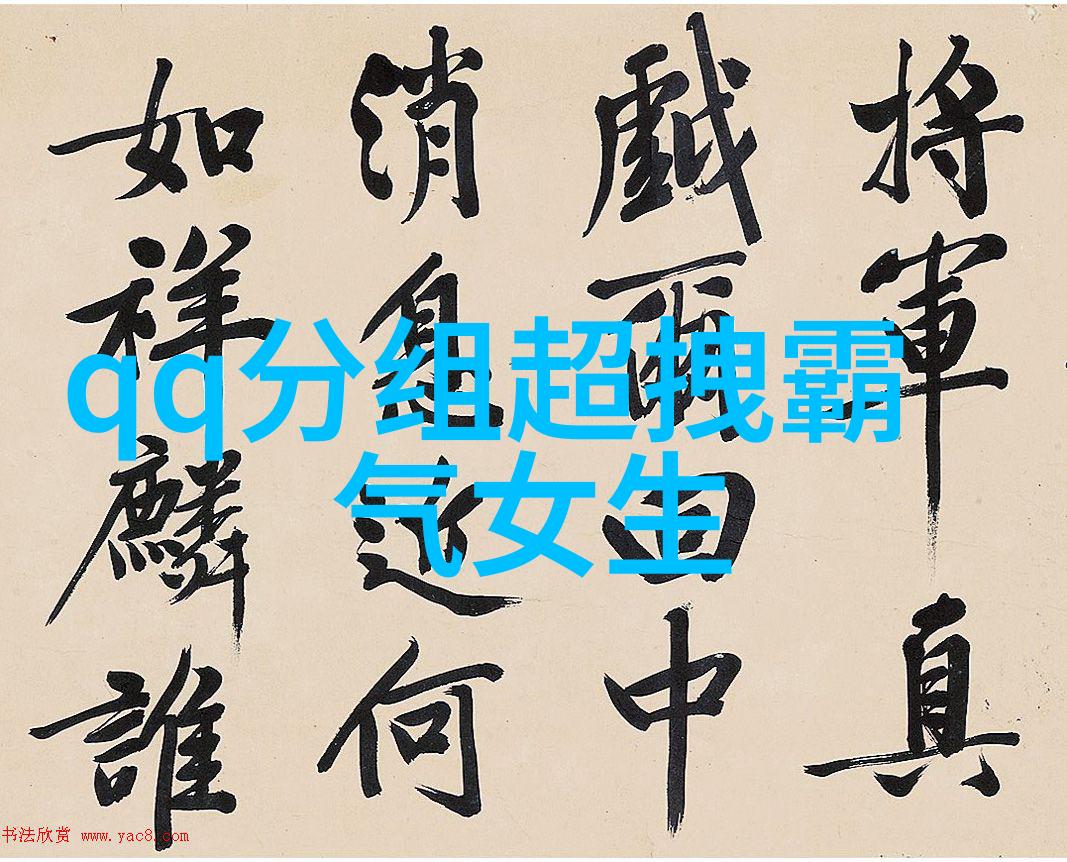 将軍真
戲爾田中
消息近何
如祥麟誰
qq分组超拽霸
气女生
书法欣赏 www.yac8.com